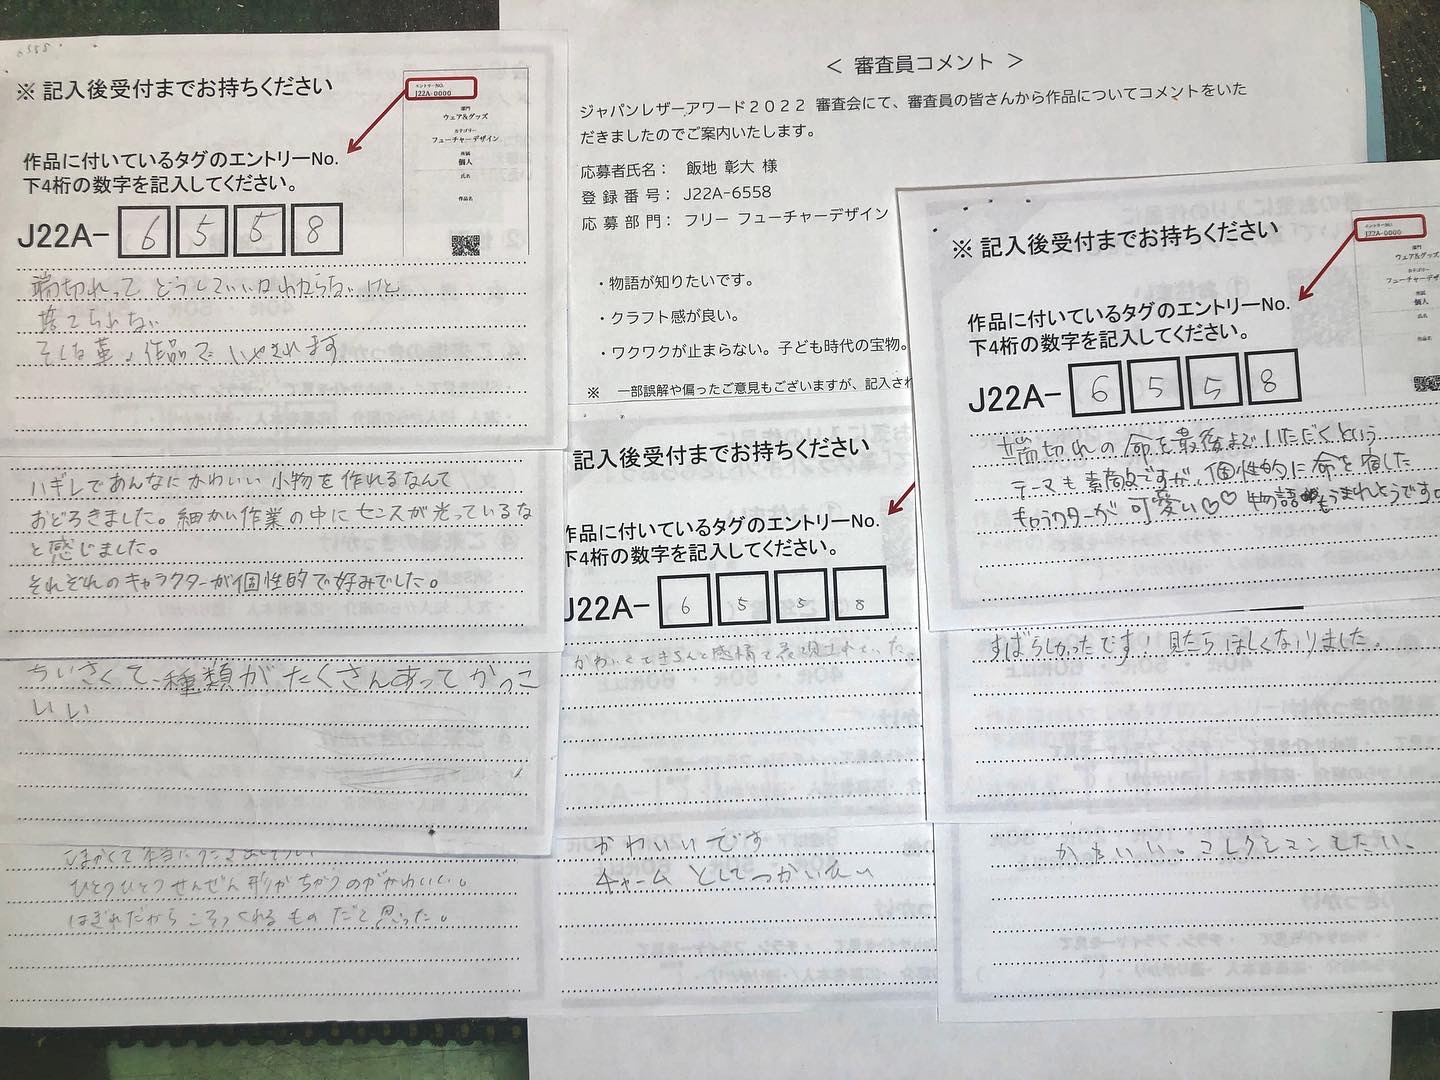 6558
※ 記入後受付までお持ちください
エントリーNo.
J22A-0000
部門
ウェア&グッズ
カテゴリー
フューチャーデザイン
所属
個人
氏名
作品名
作品に付いているタグのエントリーNo.
下4桁の数字を記入してください。
J22A- 6 5 5 8
端切れって どうしていいかわからないけど
捨てられない
そんな革。作品で いやされます
ハギレであんなにかわいい小物を作れるなんて
おどろきました。細かい作業の中にセンスが光っているな
と感じました。
それぞれのキャラクターが個性的で好みでした。
ちいさくて、種類がたくさんあってかっこ
いい
ひとつひとつぜんぜん形がちがうのがかわいい。
はぎれだからこそつくれるものだと思った。
< 審査員コメント >
ジャパンレザーアワード2022 審査会にて、審査員の皆さんから作品についてコメントをいた
だきましたのでご案内いたします。
応募者氏名: 飯地 彰大 様
登録番号: J22A-6558
応募部門: フリー フューチャーデザイン
・物語が知りたいです。
・クラフト感が良い。
・ワクワクが止まらない。子ども時代の宝物。
※ 一部誤解や偏ったご意見もございますが、記入され
記入後受付までお持ちください
作品に付いているタグのエントリーNo.
下4桁の数字を記入してください。
J22A- 6 5 5 8
かわいくてきちんと感情で表現されていた。
かわいいです
チャームとしてつかいたい
※ 記入後受付までお持ちください
エントリーNo.
J22A-0000
部門
ウェア&グッズ
カテゴリー
フューチャーデザ
所属
個人
氏名
作品名
作品に付いているタグのエントリーNo.
下4桁の数字を記入してください。
J22A- 6 5 5 8
端切れの命を最後までいただくという
テーマも素敵ですが、個性的に命を宿した
キャラクターが可愛い♡♡ 物語もうまれそうです。
すばらしかったです! 見たらほしくなりました。
かわいい。コレクションしたい、